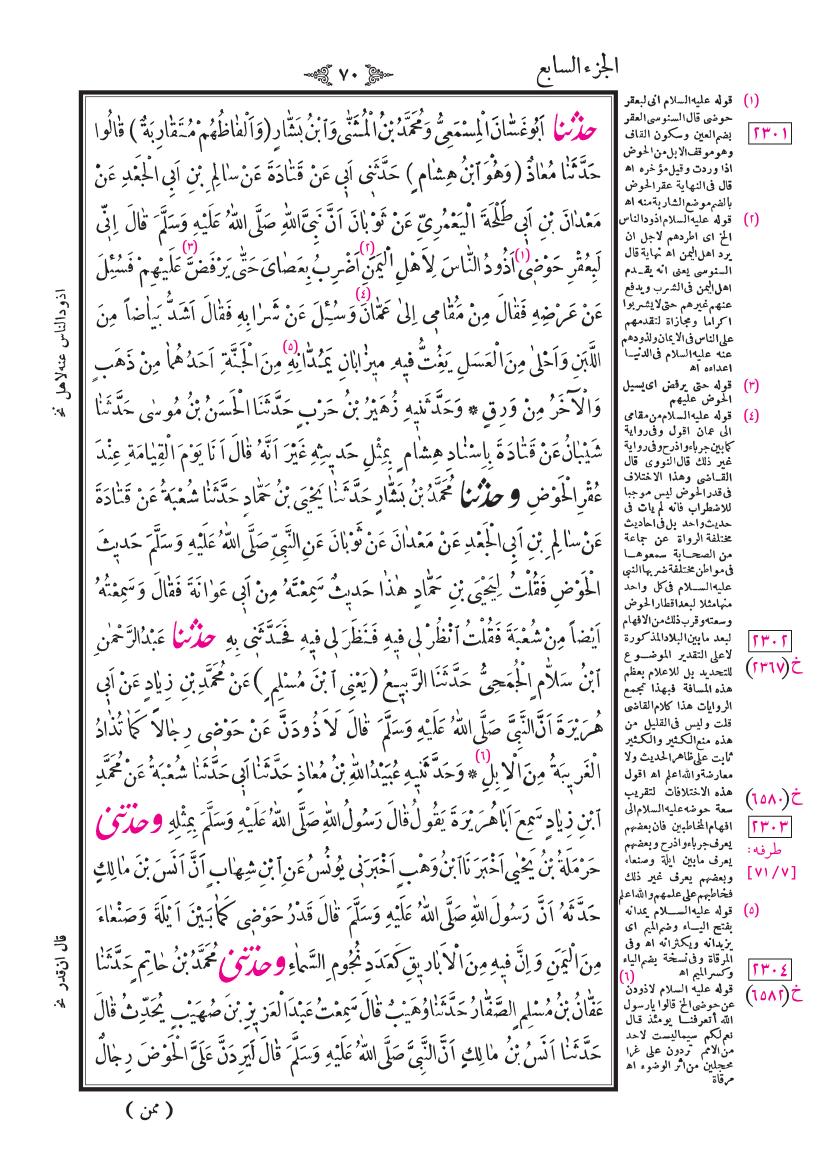 الجزء السابع
٧٠
حَدَّثَنَا اَبُوغَسَّانَ الْمِسْمَعِىُّ وَمُحَمَّدُ بْنُ الْمُثَنّٰى وَابْنُ بَشَّارٍ (وَاَلْفَاظُهُمْ مُتَقَارِبَةٌ) قَالُوا
حَدَّثَنَا مُعَاذٌ (وَهُوَ ابْنُ هِشَامٍ) حَدَّثَنِى اَبِى عَنْ قَتَادَةَ عَنْ سَالِمِ بْنِ اَبِى الْجَعْدِ عَنْ
مَعْدَانَ بْنِ اَبِى طَلْحَةَ الْيَعْمُرِىِّ عَنْ ثَوْبَانَ اَنَّ نَبِىَّ اللّٰهِ صَلَّى اللّٰهُ عَلَيْهِ وَسَلَّمَ قَالَ اِنِّى
لَبِعُقْرِ حَوْضِى (١) اَذُودُ النَّاسَ لِاَهْلِ الْيَمَنِ (٢) اَضْرِبُ بِعَصَاىَ حَتّٰى يَرْفَضَّ (٣) عَلَيْهِمْ فَسُئِلَ
عَنْ عَرْضِهِ فَقَالَ مِنْ مَقَامِى اِلٰى عَمَّانَ (٤) وَسُئِلَ عَنْ شَرَابِهِ فَقَالَ اَشَدُّ بَيَاضًا مِنَ
اللَّبَنِ وَاَحْلٰى مِنَ الْعَسَلِ يَغُتُّ فِيهِ مِيزَابَانِ يَمُدَّانِهِ (٥) مِنَ الْجَنَّةِ اَحَدُهُمَا مِنْ ذَهَبٍ
وَالْآخَرُ مِنْ وَرِقٍ * وَحَدَّثَنِيهِ زُهَيْرُ بْنُ حَرْبٍ حَدَّثَنَا الْحَسَنُ بْنُ مُوسٰى حَدَّثَنَا
شَيْبَانُ عَنْ قَتَادَةَ بِاِسْنَادِ هِشَامٍ بِمِثْلِ حَدِيثِهِ غَيْرَ اَنَّهُ قَالَ اَنَا يَوْمَ الْقِيَامَةِ عِنْدَ
عُقْرِ الْحَوْضِ وحَدَّثَنَا مُحَمَّدُ بْنُ بَشَّارٍ حَدَّثَنَا يَحْيَى بْنُ حَمَّادٍ حَدَّثَنَا شُعْبَةُ عَنْ قَتَادَةَ
عَنْ سَالِمِ بْنِ اَبِى الْجَعْدِ عَنْ مَعْدَانَ عَنْ ثَوْبَانَ عَنِ النَّبِىِّ صَلَّى اللّٰهُ عَلَيْهِ وَسَلَّمَ حَدِيثَ
الْحَوْضِ فَقُلْتُ لِيَحْيَى بْنِ حَمَّادٍ هٰذَا حَدِيثٌ سَمِعْتَهُ مِنْ اَبِى عَوَانَةَ فَقَالَ وَسَمِعْتُهُ
اَيْضًا مِنْ شُعْبَةَ فَقُلْتُ اُنْظُرْ لِى فِيهِ فَنَظَرَ لِى فِيهِ فَحَدَّثَنِى بِهِ حَدَّثَنَا عَبْدُ الرَّحْمٰنِ
ابْنُ سَلَّامٍ الْجُمَحِىُّ حَدَّثَنَا الرَّبِيعُ (يَعْنِى ابْنَ مُسْلِمٍ) عَنْ مُحَمَّدِ بْنِ زِيَادٍ عَنْ اَبِى
هُرَيْرَةَ اَنَّ النَّبِىَّ صَلَّى اللّٰهُ عَلَيْهِ وَسَلَّمَ قَالَ لَاَذُودَنَّ عَنْ حَوْضِى رِجَالًا كَمَا تُذَادُ
الْغَرِيبَةُ مِنَ الْاِبِلِ (٦) * وَحَدَّثَنِيهِ عُبَيْدُ اللّٰهِ بْنُ مُعَاذٍ حَدَّثَنَا اَبِى حَدَّثَنَا شُعْبَةُ عَنْ مُحَمَّدِ
ابْنِ زِيَادٍ سَمِعَ اَبَا هُرَيْرَةَ يَقُولُ قَالَ رَسُولُ اللّٰهِ صَلَّى اللّٰهُ عَلَيْهِ وَسَلَّمَ بِمِثْلِهِ وحَدَّثَنِى
حَرْمَلَةُ بْنُ يَحْيٰى اَخْبَرَنَا ابْنُ وَهْبٍ اَخْبَرَنِى يُونُسُ عَنِ ابْنِ شِهَابٍ اَنَّ اَنَسَ بْنَ مَالِكٍ
حَدَّثَهُ اَنَّ رَسُولَ اللّٰهِ صَلَّى اللّٰهُ عَلَيْهِ وَسَلَّمَ قَالَ قَدْرُ حَوْضِى كَمَا بَيْنَ اَيْلَةَ وَصَنْعَاءَ
مِنَ الْيَمَنِ وَاِنَّ فِيهِ مِنَ الْاَبَارِيقِ كَعَدَدِ نُجُومِ السَّمَاءِ وحَدَّثَنِى مُحَمَّدُ بْنُ حَاتِمٍ حَدَّثَنَا
عَفَّانُ بْنُ مُسْلِمٍ الصَّفَّارُ حَدَّثَنَا وُهَيْبٌ قَالَ سَمِعْتُ عَبْدَ الْعَزِيزِ بْنَ صُهَيْبٍ يُحَدِّثُ قَالَ
حَدَّثَنَا اَنَسُ بْنُ مَالِكٍ اَنَّ النَّبِىَّ صَلَّى اللّٰهُ عَلَيْهِ وَسَلَّمَ قَالَ لَيَرِدَنَّ عَلَىَّ الْحَوْضَ رِجَالٌ
(ممن)
(١) قوله عليه السلام انى لبعقر
حوضى قال السنوسى العقر
بضم العين وسكون القاف
وهو موقف الابل من الحوض
اذا وردت وقيل مؤخره اه
قال فى النهاية عقر الحوض
بالضم موضع الشاربة منه اه
(٢) قوله عليه السلام اذود الناس
الخ اى اطردهم لاجل ان
يرد اهل اليمن اه نهاية قال
السنوسى يعنى انه يقدم
اهل اليمن فى الشرب ويدفع
عنهم غيرهم حتى لا يشربوا
اكراما ومجازاة لتقدمهم
على الناس فى الايمان ولذودهم
عنه عليه السلام فى الدنيا
اعداءه اه
(٣) قوله حتى يرفض اى يسيل
الحوض عليهم
(٤) قوله عليه السلام من مقامى
الى عمان اقول وفى رواية
كما بين جرباء واذرح وفى رواية
غير ذلك قال النووى قال
القاضى وهذا الاختلاف
فى قدر الحوض ليس موجبا
للاضطراب فانه لم يات فى
حديث واحد بل فى احاديث
مختلفة الرواة عن جماعة
من الصحابة سمعوها
فى مواطن مختلفة ضربها النبى
عليه السلام فى كل واحد
منها مثلا لبعد اقطار الحوض
وسعته وقرب ذلك من الافهام
لبعد ما بين البلاد المذكورة
لا على التقدير الموضوع
للتحديد بل للاعلام بعظم
هذه المسافة فبهذا تجمع
الروايات هذا كلام القاضى
قلت وليس فى القليل من
هذه منع الكثير والكثير
ثابت على ظاهر الحديث ولا
معارضة والله اعلم اه اقول
هذه الاختلافات لتقريب
سعة حوضه عليه السلام الى
افهام المخاطبين فان بعضهم
يعرف جرباء واذرح وبعضهم
يعرف ما بين ايلة وصنعاء
وبعضهم يعرف غير ذلك
فخاطبهم على علمهم والله اعلم
(٥) قوله عليه السلام يمدانه
بفتح الياء وضم الميم اى
يزيدانه ويكثرانه اه وفى
المرقاة وفى نسخة بضم الياء
وكسر الميم اه
(٦) قوله عليه السلام لاذودن
عن حوضى الخ قالوا يارسول
الله أتعرفنا يومئذ قال
نعم لكم سيما ليست لاحد
من الامم تردون على غرا
محجلين من اثر الوضوء اه
مرقاة
٢٣٠١
٢٣٠٢
خ (٢٣٦٧)
خ (٦٥٨٠)
٢٣٠٣
طرفه:
[٧١/٧]
٢٣٠٤
خ (٦٥٨٢)
اذود الناس عنه لاهل نخ
قال ان قدر نخ